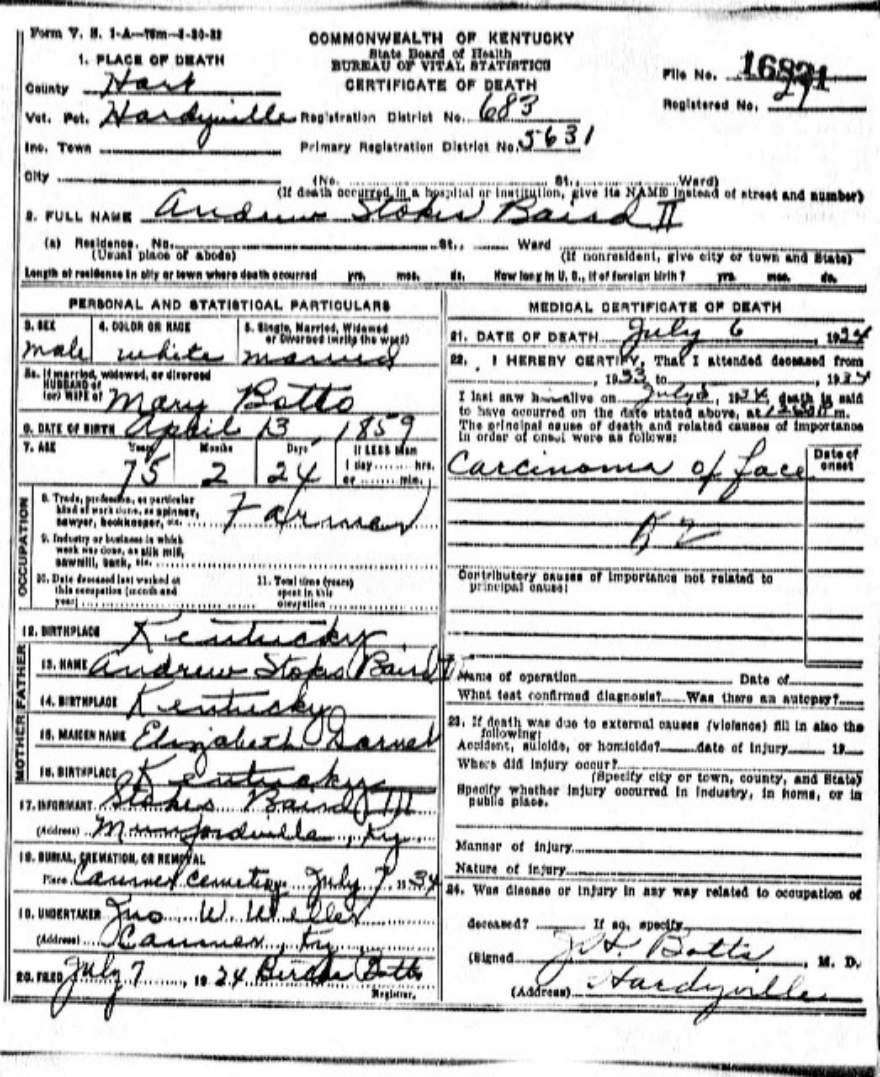 Form V. S. 1-A—75m-1-30-32
COMMONWEALTH OF KENTUCKY
State Board of Health
BUREAU OF VITAL STATISTICS
CERTIFICATE OF DEATH
File No. 16821
Registered No. 27
1. PLACE OF DEATH
County Hart
Vot. Pct. Hardyville Registration District No. 683
Inc. Town Primary Registration District No. 5631
City (No. St., Ward)
(If death occurred in a hospital or institution, give its NAME instead of street and number)
2. FULL NAME Andrew Stokes Baird II
(a) Residence. No. St., Ward
(Usual place of abode) (If nonresident, give city or town and State)
Length of residence in city or town where death occurred yrs. mos. ds. How long in U. S., if of foreign birth? yrs. mos. ds.
PERSONAL AND STATISTICAL PARTICULARS
3. SEX 4. COLOR OR RACE 5. Single, Married, Widowed
or Divorced (write the word)
male white married
5a. If married, widowed, or divorced
HUSBAND of
(or) WIFE of Mary Botts
6. DATE OF BIRTH April 13, 1859
7. AGE Years Months Days If LESS than
1 day hrs.
or min.
75 2 24
OCCUPATION
8. Trade, profession, or particular
kind of work done, as spinner,
sawyer, bookkeeper, etc. Farmer
9. Industry or business in which
work was done, as silk mill,
sawmill, bank, etc.
10. Date deceased last worked at
this occupation (month and
year)
11. Total time (years)
spent in this
occupation
12. BIRTHPLACE Kentucky
FATHER
13. NAME Andrew Stokes Baird
14. BIRTHPLACE Kentucky
MOTHER
15. MAIDEN NAME Elizabeth
16. BIRTHPLACE Kentucky
17. INFORMANT Stokes Baird III
(Address) Munfordville, Ky.
18. BURIAL, CREMATION, OR REMOVAL
Place Canmer Cemetery July 7 1934
19. UNDERTAKER Jno W. Weller
(Address) Canmer, Ky.
20. FILED July 7, 1934 Birdie Botts
Registrar.
MEDICAL CERTIFICATE OF DEATH
21. DATE OF DEATH July 6, 1934
22. I HEREBY CERTIFY, That I attended deceased from
, 1933 to , 1934
I last saw h alive on July, 1934, death is said
to have occurred on the date stated above, at m.
The principal cause of death and related causes of importance
in order of onset were as follows:
Date of
onset
Carcinoma of face
Contributory causes of importance not related to
principal cause:
Name of operation Date of
What test confirmed diagnosis? Was there an autopsy?
23. If death was due to external causes (violence) fill in also the
following:
Accident, suicide, or homicide? date of injury 19
Where did injury occur?
(Specify city or town, county, and State)
Specify whether injury occurred in industry, in home, or in
public place.
Manner of injury
Nature of injury
24. Was disease or injury in any way related to occupation of
deceased? If so, specify
(Signed Botts, M. D.
(Address) Hardyville